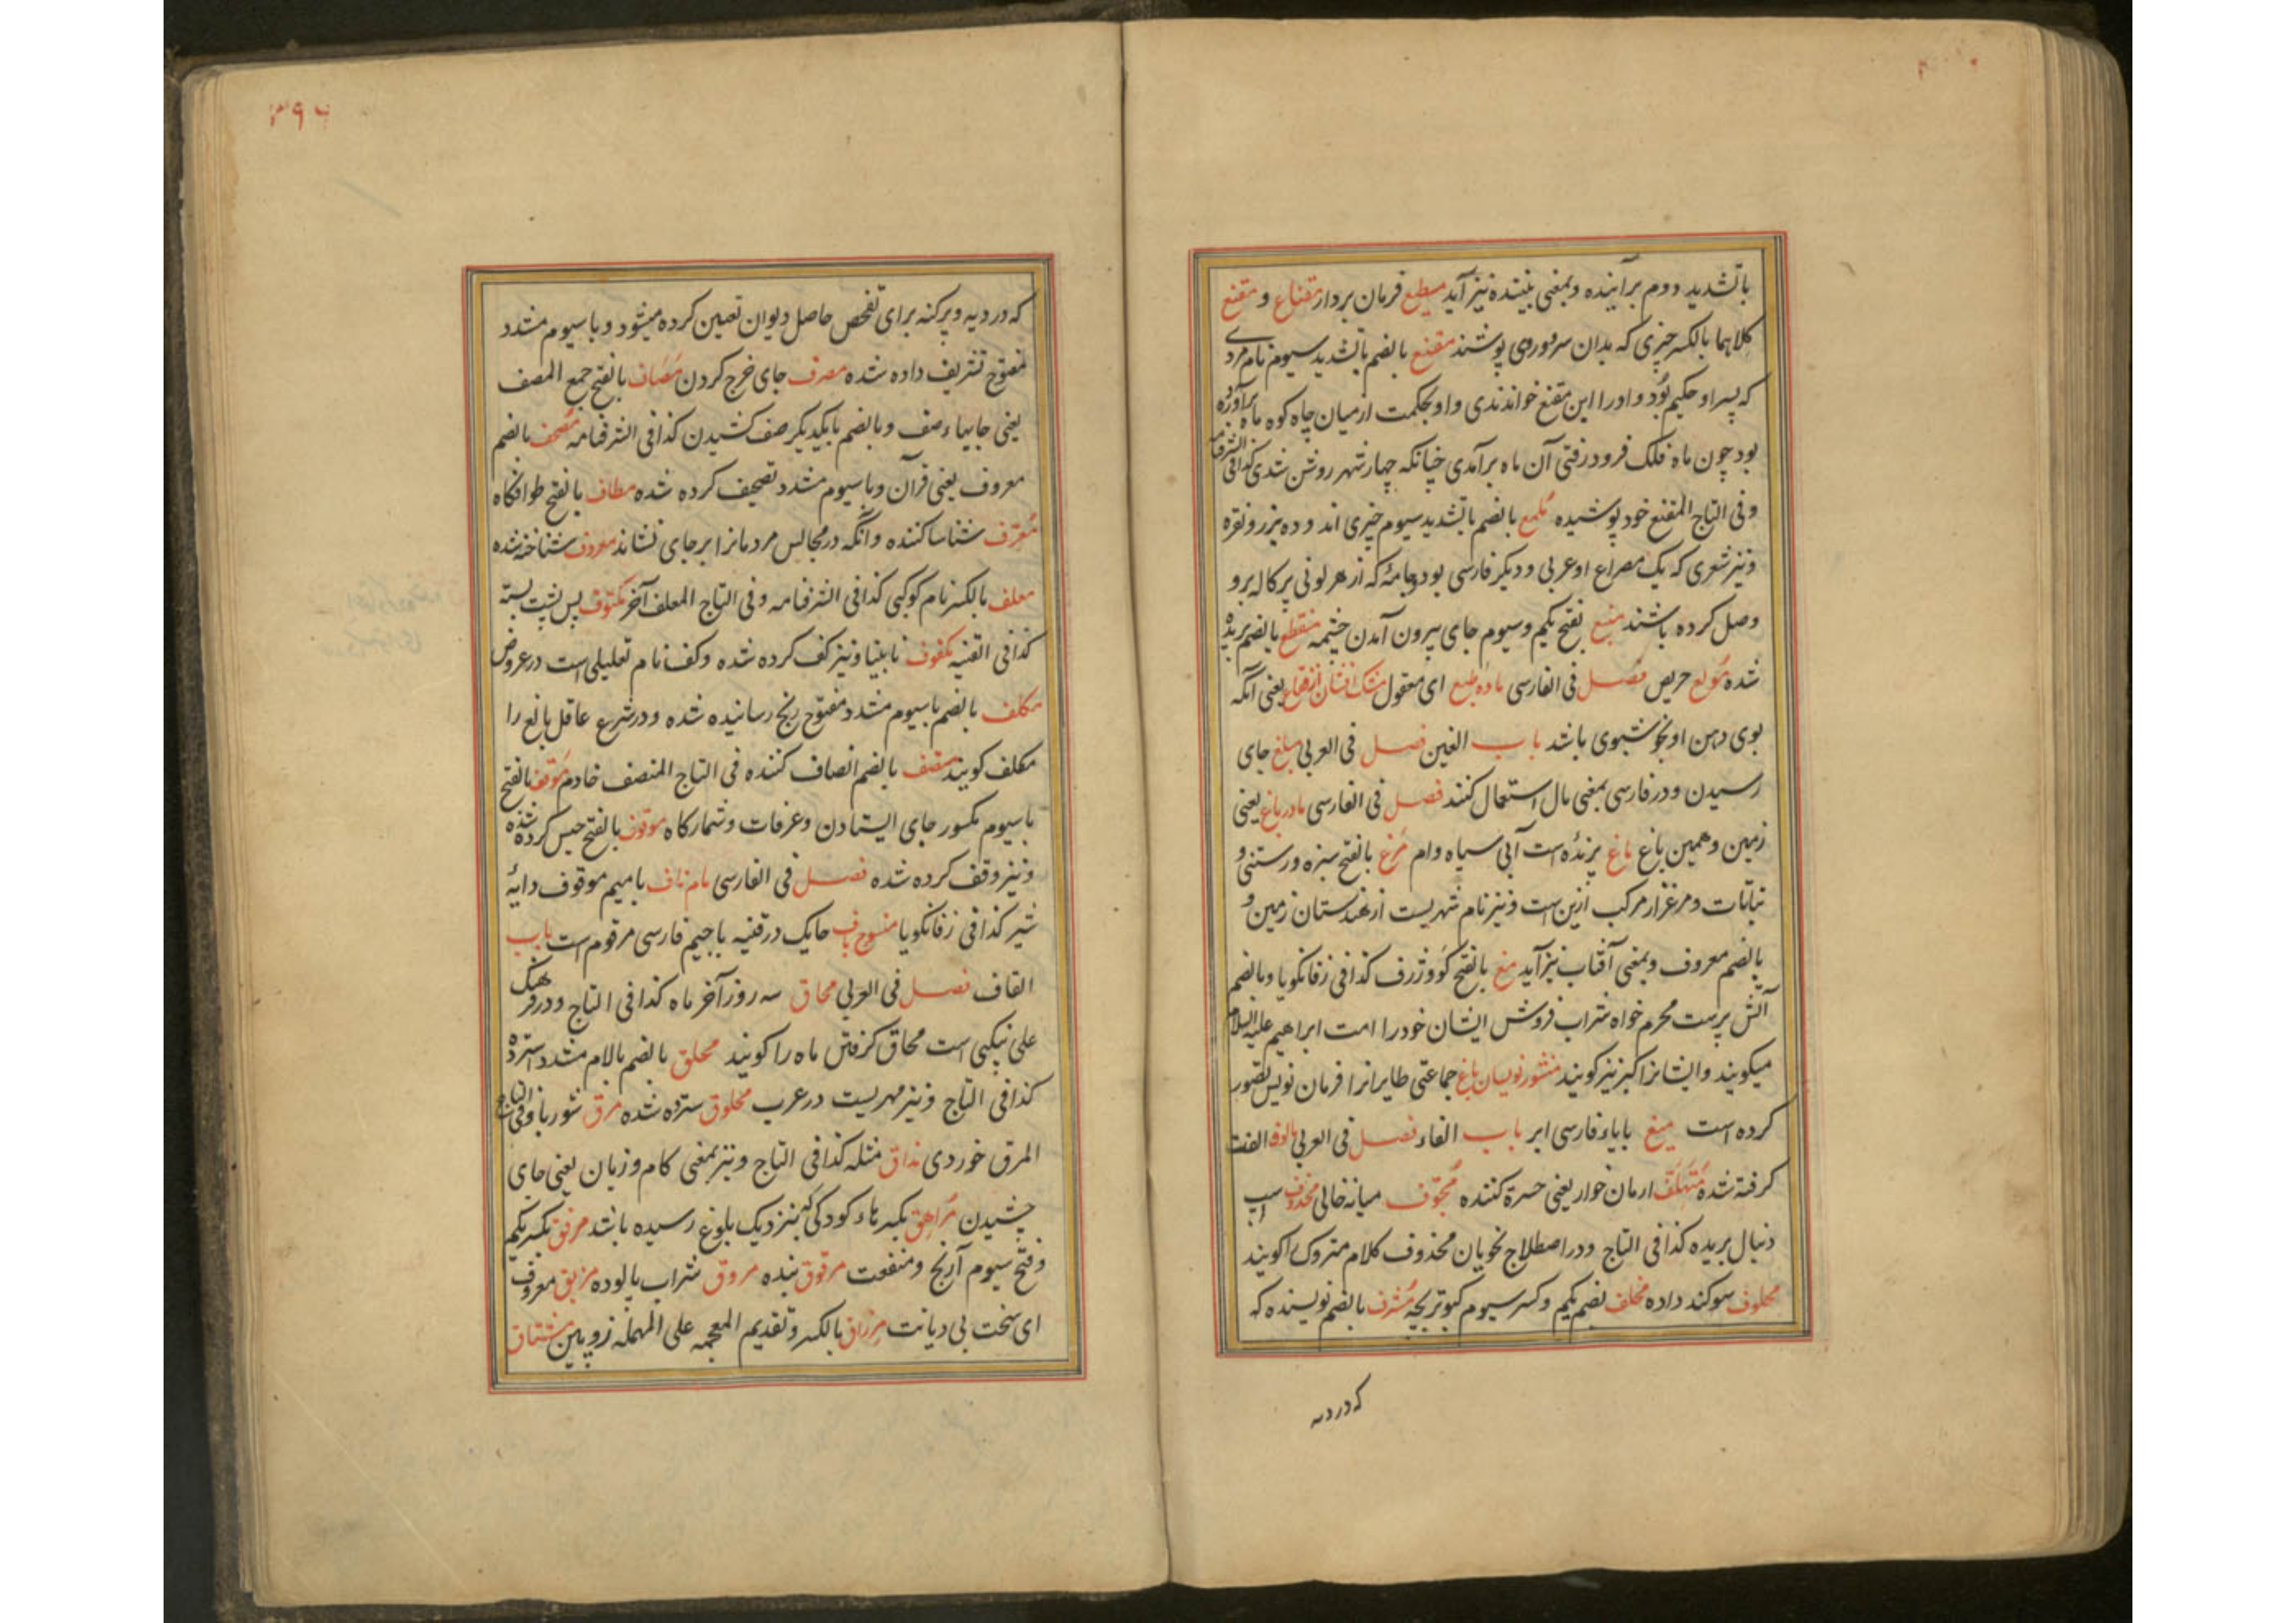 با تشدید دوم برآینده و بمعنی بیننده نیز آید مطیع فرمان بردار مقناع و مقنع
کلاهما بالکسر چیزی که بدان سر و روی پوشند مقنع بالضم با تشدید سیوم نام مردی
که پسر او حکیم بود و او را ابن مقنع خواندندی و او بحکمت از میان چاه کوه ماه برآورده
بود چون ماه فلک فرود رفتی آن ماه برآمدی چنانکه چهار شهر روشن شدی کذا فی الشرفنامه
و فی التاج المقنع خود پوشیده ملمع بالضم با تشدید سیوم چیزی اندوده بزر و نقره
و نیز شعری که یک مصراع او عربی و دیگر فارسی بود و جامهٔ که از هر لونی پرکاله برو
وصل کرده باشند منبع بفتح یکم و سیوم جای بیرون آمدن چشمه منقطع بالضم بریده
شده مولع حریص فصل فی الفارسی ماده طبع ای معقول مشک افشان از فقاع یعنی آنکه
بوی دهن او بخوشبوی باشد باب الغین فصل فی العربی مبلغ جای
رسیدن و در فارسی بمعنی مال استعمال کنند فصل فی الفارسی مادر باغ یعنی
زمین و همین باغ ماغ پرنده است آبی سیاه وام مرغ بالفتح سبزه و رستنی و
نباتات و مرغزار مرکب ازین است و نیز نام شهریست از هندستان زمین و
بالضم معروف و بمعنی آفتاب نیز آید مغ بالفتح کو و ژرف کذا فی زفانکویا و بالضم
آتش پرست محرم خواه شراب فروش ایشان خود را امت ابراهیم علیه السلام
میکویند و ایشانرا کبر نیز کویند منشور نویسان باغ جماعتی طایرانرا فرمان نویس تصور
کرده است میغ بایاء فارسی ابر باب الفاء فصل فی العربی مالوف الفت
کرفته شده متهلف ارمان خوار یعنی حسرة کننده مجوف میانه خالی محذوف اسپ
دنبال بریده کذا فی التاج و در اصطلاح نحویان محذوف کلام متروک را کویند
محلوف سوکند داده مخلف بضم یکم و کسر سیوم کبوتر بچه مشرف بالضم نویسنده که
که در دیه
۳۹۶
که در دیه و پرکنه برای تفحص حاصل دیوان تعین کرده میشود و با سیوم مشدد
مفتوح تشریف داده شده مصرف جای خرج کردن مصاف بالفتح جمع المصف
یعنی جایهاء صف و بالضم با یکدیکر صف کشیدن کذا فی الشرفنامه مصحف بالضم
معروف یعنی قرآن و با سیوم مشدد تصحیف کرده شده مطاف بالفتح طوافکاه
معرف شناسا کننده و آنکه در مجالس مردمانرا بر جای نشاند معروف شناخته شده
معلف بالکسر نام کوکبی کذا فی الشرفنامه و فی التاج المعلف آخر مکتوف پس پشت بسته
کذا فی القنیه مکفوف نابینا و نیز کف کرده شده و کف نام تعلیلی است در عروض
مکلف بالضم با سیوم مشدد مفتوح رنج رسانیده شده و در شرع عاقل بالغ را
مکلف کویند منصف بالضم انصاف کننده فی التاج المنصف خادم موقف بالفتح
با سیوم مکسور جای ایستادن و عرفات و شمارکاه موقوف بالفتح حبس کرده شده
و نیز وقف کرده شده فصل فی الفارسی مام ناف با میم موقوف دایهٔ
شیر کذا فی زفانکویا منسوج باف حایک در قنیه با جیم فارسی مرقوم است باب
القاف فصل فی العربی محاق سه روز آخر ماه کذا فی التاج و در فرهنک
علی نیکبی است محاق کرفتن ماه را کویند محلق بالضم بالام مشدد استرده
کذا فی التاج و نیز مهریست در عرب محلوق سترده شده مرق شوربا و فی التاج
المرق خوردی مذاق مثله کذا فی التاج و نیز بمعنی کام و زبان یعنی جای
چشیدن مراهق بکسر هاء کودکی که بنزدیک بلوغ رسیده باشد مرفق بکسر یکم
و فتح سیوم آرنج و منفعت مرقوق بنده مروق شراب پالوده مزبق معروف
ای سخت بی دیانت مزراق بالکسر و تقدیم المعجمه علی المهمله زوبین مشتاق